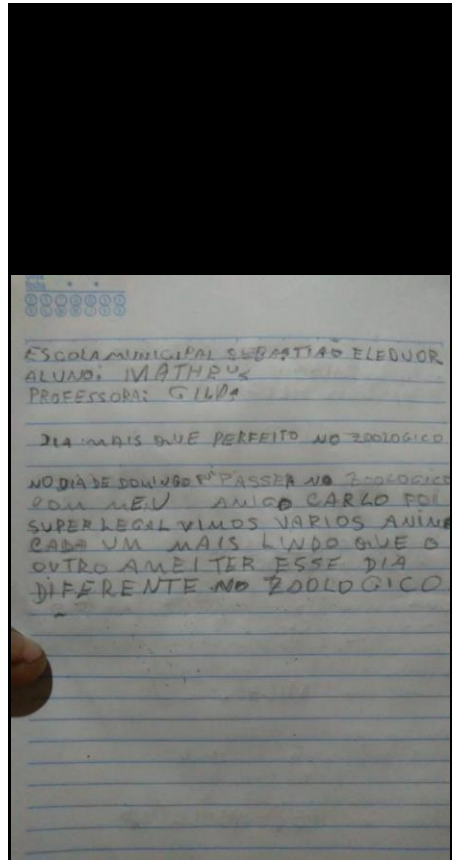 ESCOLA MUNICIPAL SEBASTIÃO ELEDUOR
ALUNO: MATHEUS
PROFESSORA: GILDA
DIA MAIS QUE PERFEITO NO ZOOLOGICO
NO DIA DE DOMINGO FI PASSER NO ZOOLOGICO
COM MEU AMIGO CARLO FOI
SUPER LEGAL VIMOS VARIOS ANIM
CADA UM MAIS LINDO QUE O
OUTRO AMEI TER ESSE DIA
DIFERENTE NO ZOOLOGICO